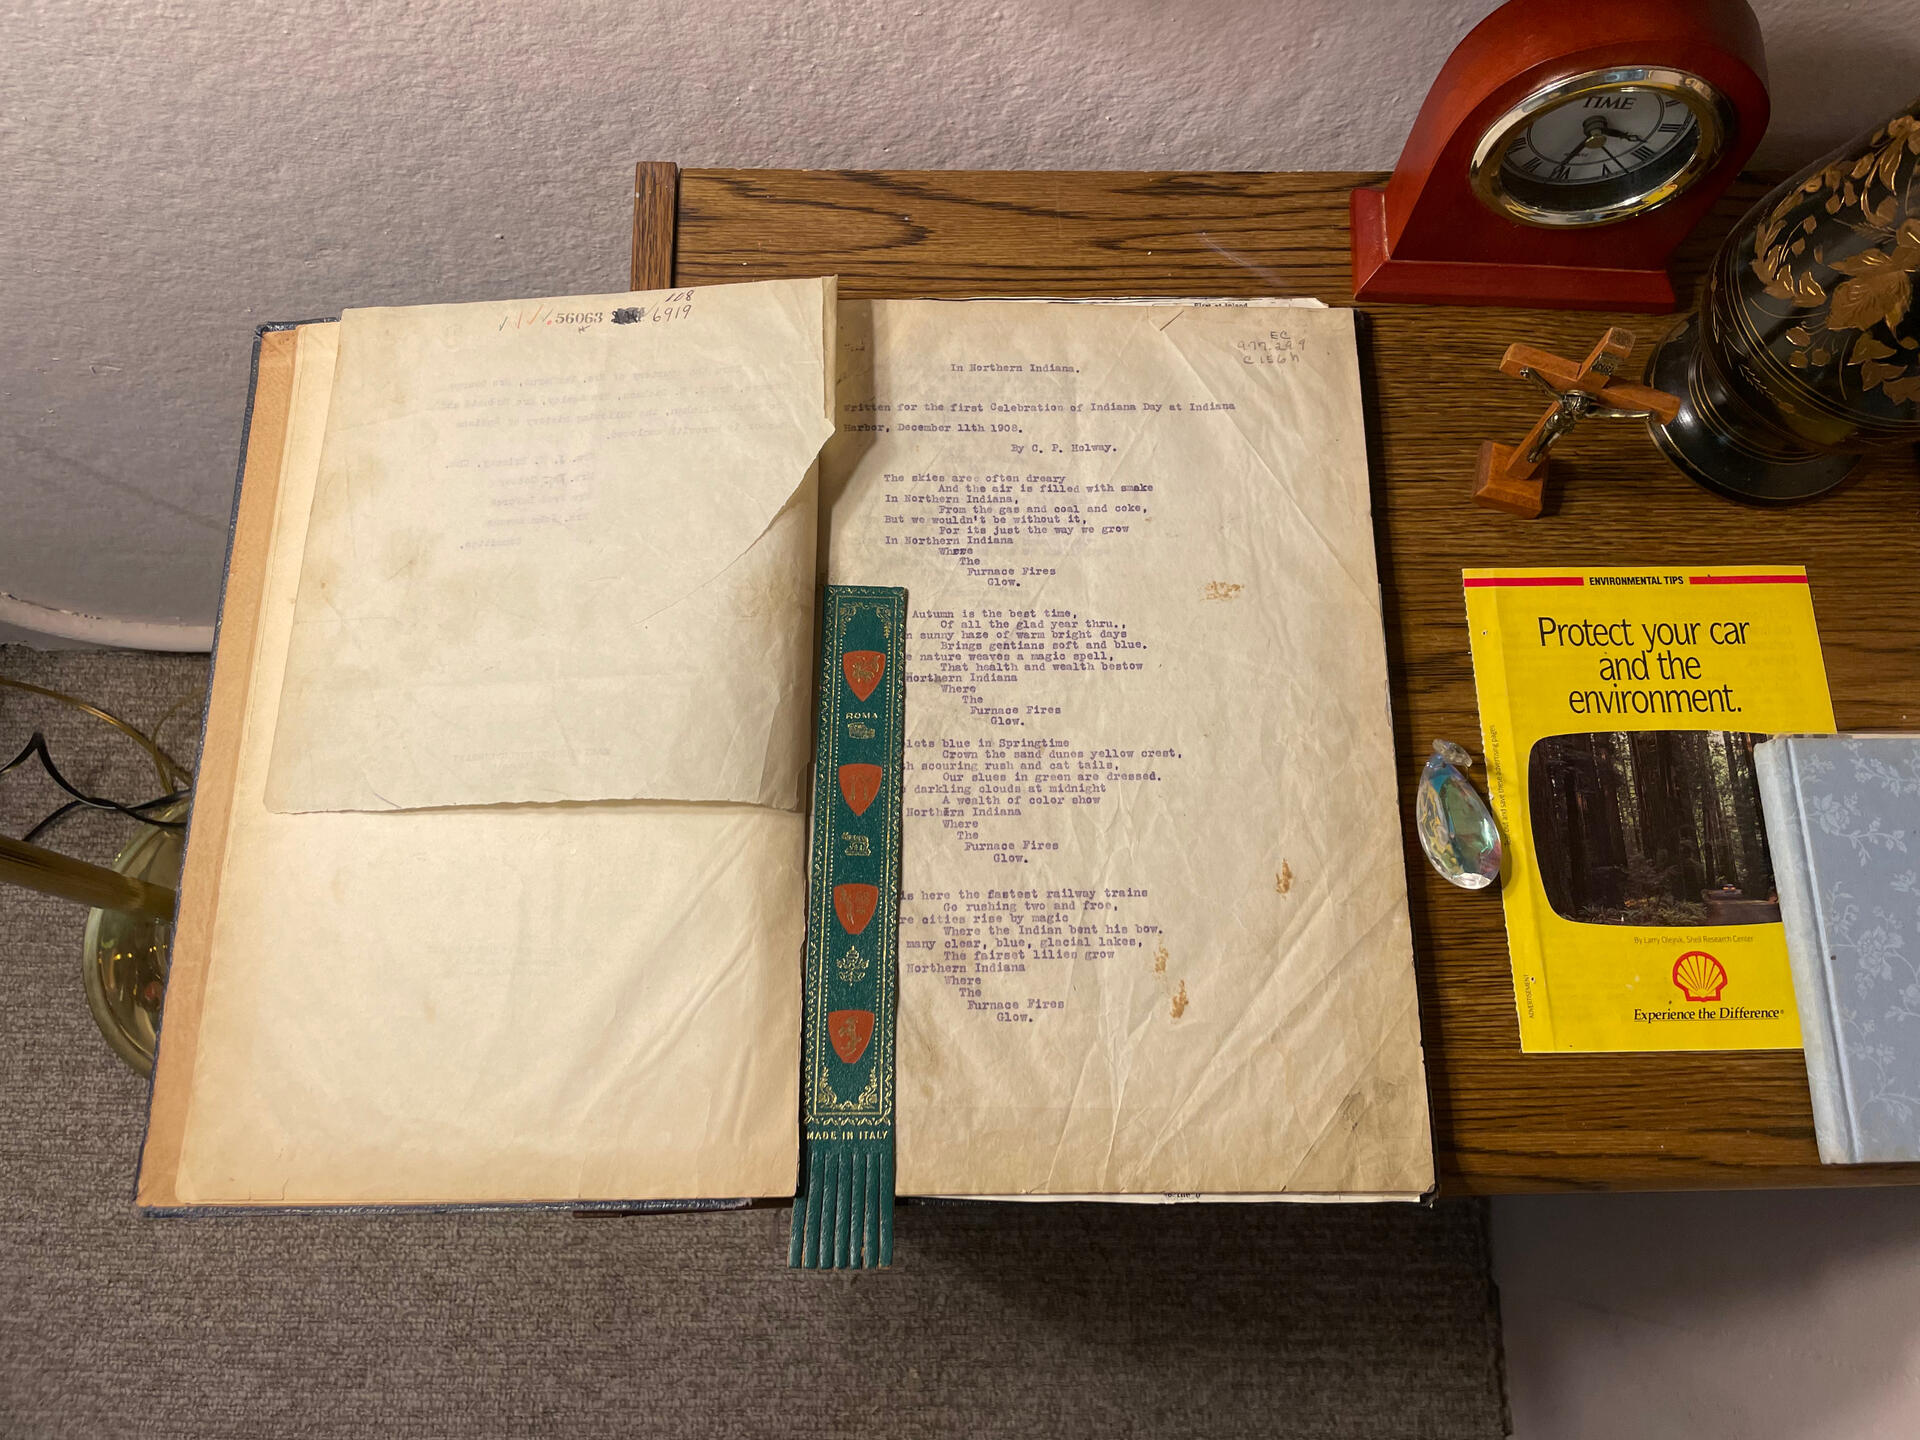 108
56063 6919
EC
977.299
C156h
In Northern Indiana.
Written for the first Celebration of Indiana Day at Indiana
Harbor, December 11th 1908.
By C. P. Holway.
The skies are often dreary
And the air is filled with smoke
In Northern Indiana,
From the gas and coal and coke,
But we wouldn't be without it,
For its just the way we grow
In Northern Indiana
Where
The
Furnace Fires
Glow.
Autumn is the best time,
Of all the glad year thru.,
n sunny haze of warm bright days
Brings gentians soft and blue.
e nature weaves a magic spell,
That health and wealth bestow
Northern Indiana
Where
The
Furnace Fires
Glow.
lets blue in Springtime
Crown the sand dunes yellow crest,
h scouring rush and cat tails,
Our slues in green are dressed.
darkling clouds at midnight
A wealth of color show
Northern Indiana
Where
The
Furnace Fires
Glow.
is here the fastest railway trains
Go rushing two and froe,
re cities rise by magic
Where the Indian bent his bow.
many clear, blue, glacial lakes,
The fairset lilies grow
Northern Indiana
Where
The
Furnace Fires
Glow.
ROMA
MADE IN ITALY
TIME
ENVIRONMENTAL TIPS
Protect your car
and the
environment.
By Larry Olejnik, Shell Research Center
Experience the Difference®
ADVERTISEMENT